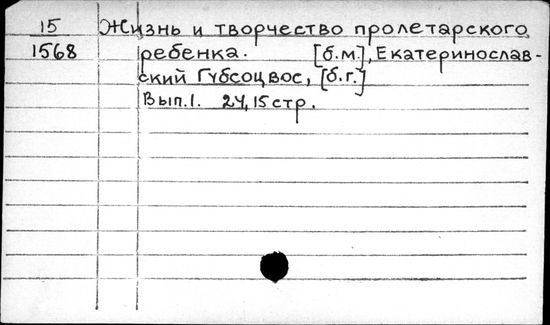 15 Жизнь и творчество пролетарского
1568 ребенка. [б.м.], Екатеринослав-
ский Губсоцвос, [б.г.]
Вып.1. 24, 15 стр.